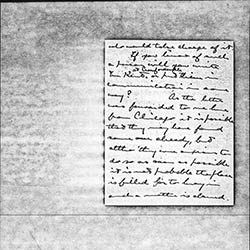 who would take charge of it.
If you know of such
a person will you write
Mr. Nantz, or put him in
communication in some
way? As the letter
was forwarded to me here
from Chicago it is possible
that they may have found
some one already, but
altho they are anxious to
do so as soon as possible
it is not probable the place
is filled, for to have in
such a matter is